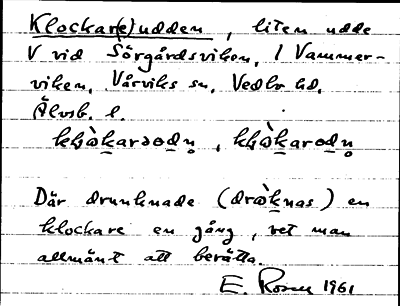 Klockar(e)udden, liten udde
V vid Sörgårdsviken, i Vammer-
viken, Vårviks sn, Vedbo hd,
Älvsb. l.
Där drunknade (dräknas) en
klockare en gång, vet man
allmänt att berätta.
E. Rosen 1961